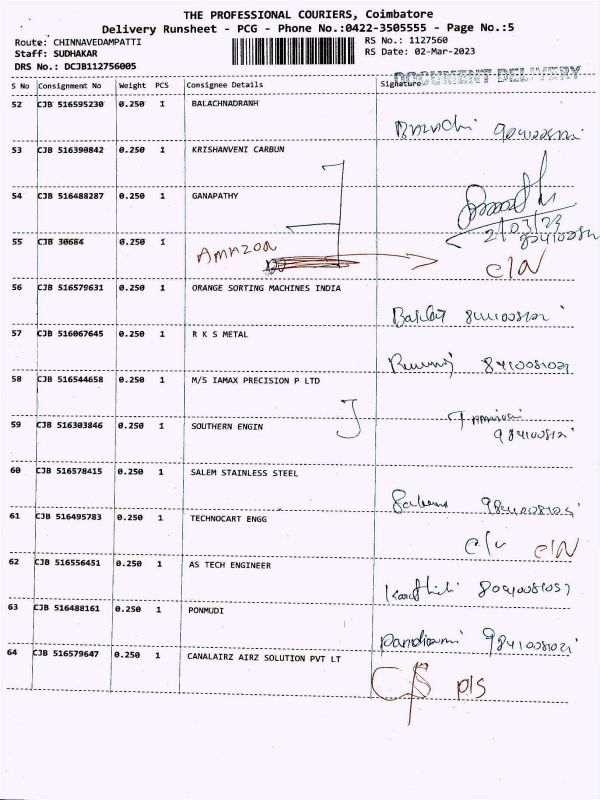 THE PROFESSIONAL COURIERS, Coimbatore
Delivery Runsheet - PCG - Phone No.:0422-3505555 - Page No.:5
Route: CHINNAVEDAMPATTI
Staff: SUDHAKAR
DRS No.: DCJB112756005
RS No.: 1127560
RS Date: 02-Mar-2023
DOCUMENT DELIVERY
S No Consignment No Weight PCS Consignee Details Signature
52 CJB 516595230 0.250 1 BALACHNADRANH
53 CJB 516390842 0.250 1 KRISHANVENI CARBUN
54 CJB 516488287 0.250 1 GANAPATHY
2/03/23
55 CJB 30684 0.250 1 Amazon C/N
56 CJB 516579631 0.250 1 ORANGE SORTING MACHINES INDIA
57 CJB 516067645 0.250 1 R K S METAL
58 CJB 516544658 0.250 1 M/S IAMAX PRECISION P LTD
59 CJB 516303846 0.250 1 SOUTHERN ENGIN
60 CJB 516578415 0.250 1 SALEM STAINLESS STEEL
61 CJB 516495783 0.250 1 TECHNOCART ENGG C/N
62 CJB 516556451 0.250 1 AS TECH ENGINEER
63 CJB 516488161 0.250 1 PONMUDI
64 CJB 516579647 0.250 1 CANALAIRZ AIRZ SOLUTION PVT LT P/S